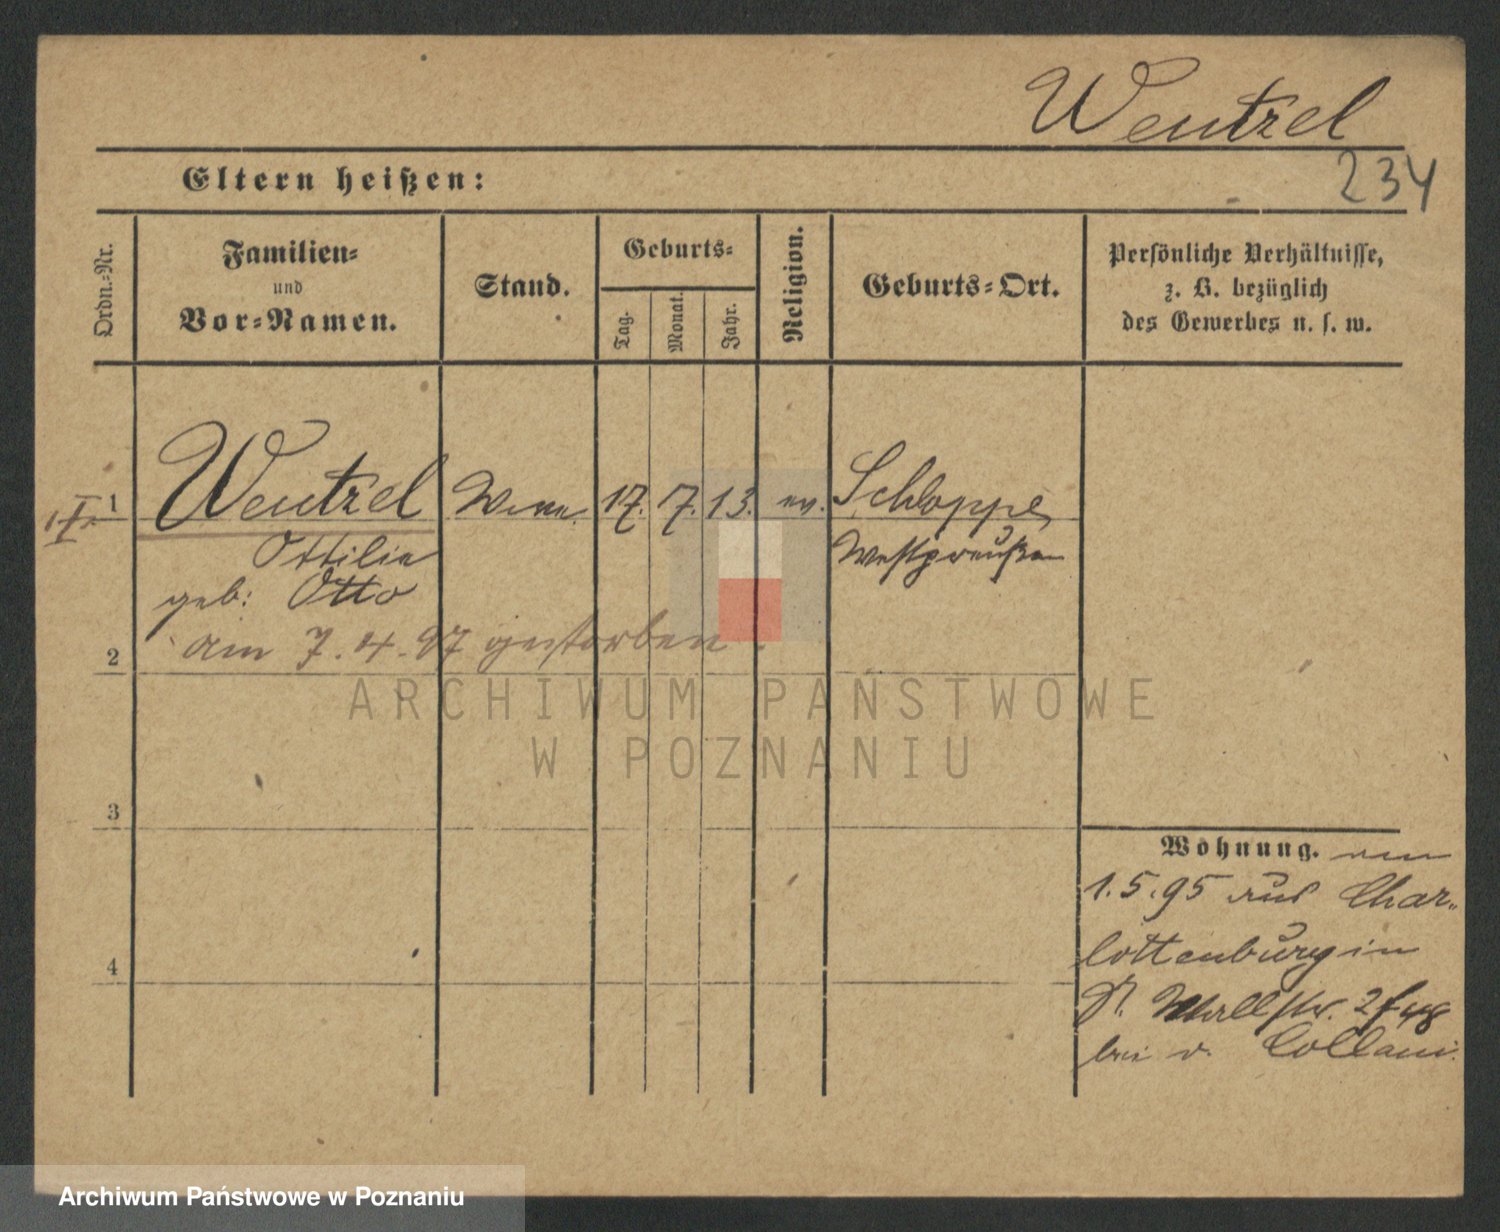 Wentzel
234
Eltern heißen:
Ordn.-Nr.
Familien-
und
Vor-Namen.
Stand.
Geburts-
Tag.
Monat.
Jahr.
Religion.
Geburts-Ort.
Persönliche Verhältnisse,
z. B. bezüglich
des Gewerbes u. s. w.
1
Wentzel
Wwe.
17.
7.
13.
ev.
Schloppe
Ottilie
Westpreußen
geb: Otto
am 7.4.97 gestorben.
2
ARCHIWUM PAŃSTWOWE
W POZNANIU
3
Wohnung. am
1.5.95 aus Char-
lottenburg in
P. Wallstr.
bei v. Collani.
4
Archiwum Państwowe w Poznaniu